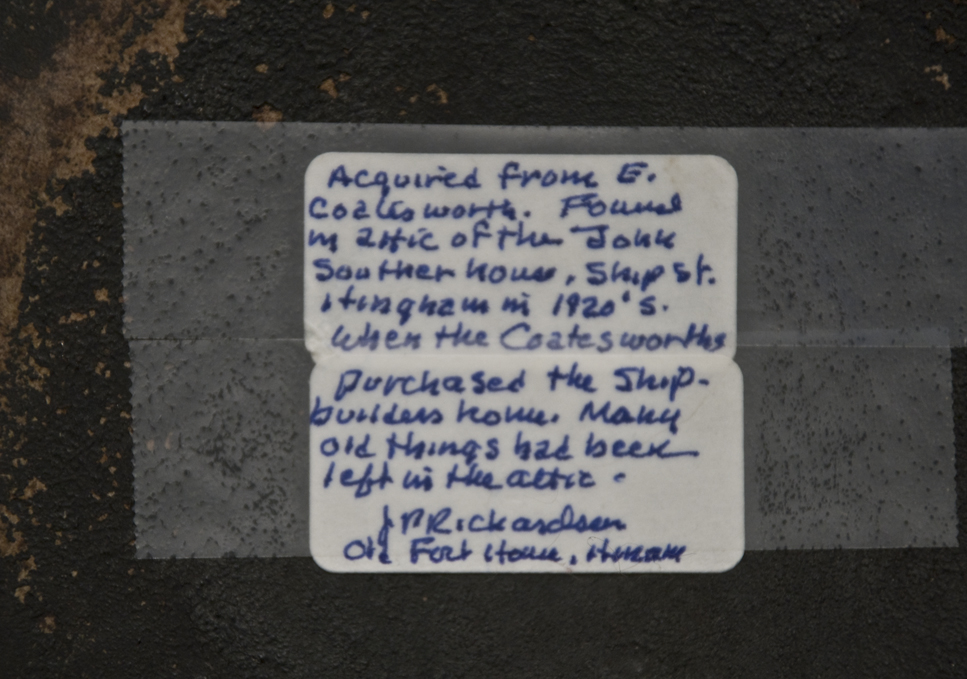 Acquired from E.
Coatesworth. Found
in attic of the John
Souther house, Ship St.
Hingham in 1920's.
When the Coatesworths
purchased the Ship-
builders home. Many
old things had been
left in the attic.
J P Richardson
Old Fort House,